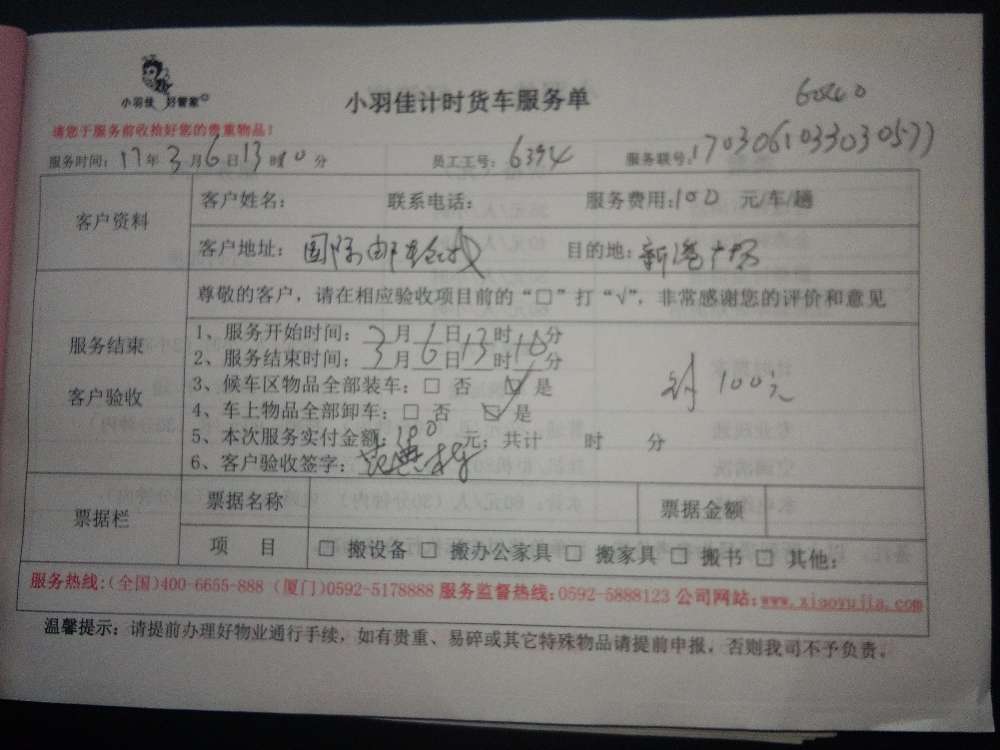 小羽佳 好管家
小羽佳计时货车服务单
60440
请您于服务前收拾好您的贵重物品！
服务时间：17年3月6日13时10分 员工工号：6394 服务联号：170306103303057
客户资料
客户姓名： 联系电话： 服务费用：100 元/车/趟
客户地址：国际邮轮城 目的地：新港广场
尊敬的客户，请在相应验收项目前的“□”打“√”，非常感谢您的评价和意见
服务结束
客户验收
1、服务开始时间：3月6日13时10分
2、服务结束时间：3月6日13时10分
3、候车区物品全部装车：□ 否 □ 是
4、车上物品全部卸车：□ 否 □ 是
5、本次服务实付金额：100 元；共计 时 分
6、客户验收签字：
100元
票据栏
票据名称 票据金额
项 目 □ 搬设备 □ 搬办公家具 □ 搬家具 □ 搬书 □ 其他：
服务热线：(全国)400-6655-888 (厦门)0592-5178888 服务监督热线：0592-5888123 公司网站：www.xiaoyujia.com
温馨提示：请提前办理好物业通行手续，如有贵重、易碎或其它特殊物品请提前申报，否则我司不予负责。